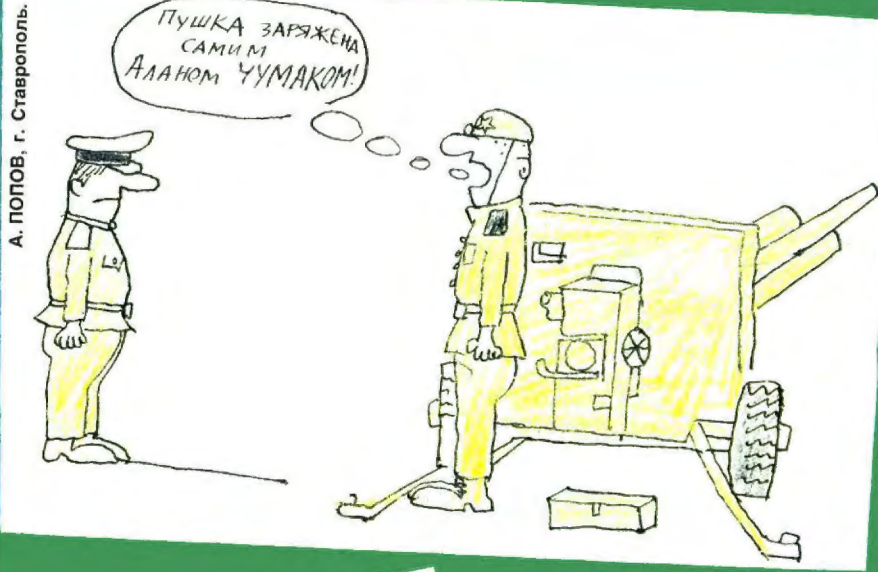 А. ПОПОВ, г. Ставрополь.
ПУШКА ЗАРЯЖЕНА
САМИМ
АЛАНОМ ЧУМАКОМ!